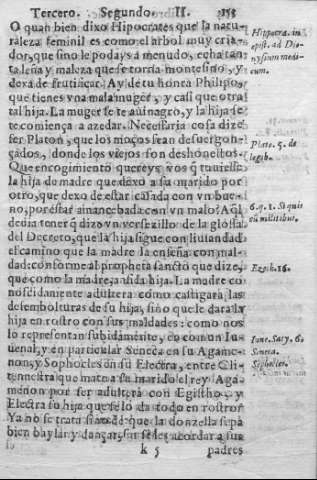 Tercero. Segundo. II. 153
O quan bien dixo Hipocrates que la natu-
raleza feminil es como el arbol muy cria-
dor, que sino le podays a menudo, echa tan
ta leña y maleza que se torna montesino, y
dexa de frutificar. Ay de tu honra Philipo,
que tienes vna mala muger, y casi que otra
tal hija. La muger se te auinagro, y la hija se
te comiença a azedar. Necessaria cosa dize
ser Platon, que los moços sean desuergon-
çados, donde los viejos son deshonestos.
Que encogimiento quereys vos q̃ tuuiesse
la hija de madre que dexo a su marido por
otro, que dexo de estar casada con vn bue-
no, por estar amancebada con vn malo? Aq̃l
dezia tener q̃ dizo vn versezillo de la glossa
del Decreto, que la hija sigue con liuiandad
el camino que la madre la enseña con mal-
dad: conforme al propheta sancto que dize,
que como la madre, assi da hija. La madre co
noscidamente adultera como castigará las
desembolturas de su hija, sino que le dara la
hija en rostro con sus maldades: como nos
lo representan subidamẽte, en comun Iu-
uenal, y en particular Seneca en su Agame-
non, y Sophocles en su Electra, entre Cli-
temnestra que mato a su marido el rey Aga-
menon por ser adultera con Egistho, y
Electra su hija que se lo da todo en rostro?
Ya no se trata sino de que la donzella sepa
bien baylar y dançar, sin se les acordar a sus
k 5 padres
Hippocra. in
epist. ad Dio-
nysium medi-
cum.
Plato. 5. de
legib.
6. q. 1. Si quis
cũ militibus.
Ezech. 16.
Iuue. Saty. 6.
Seneca.
Sophocles.